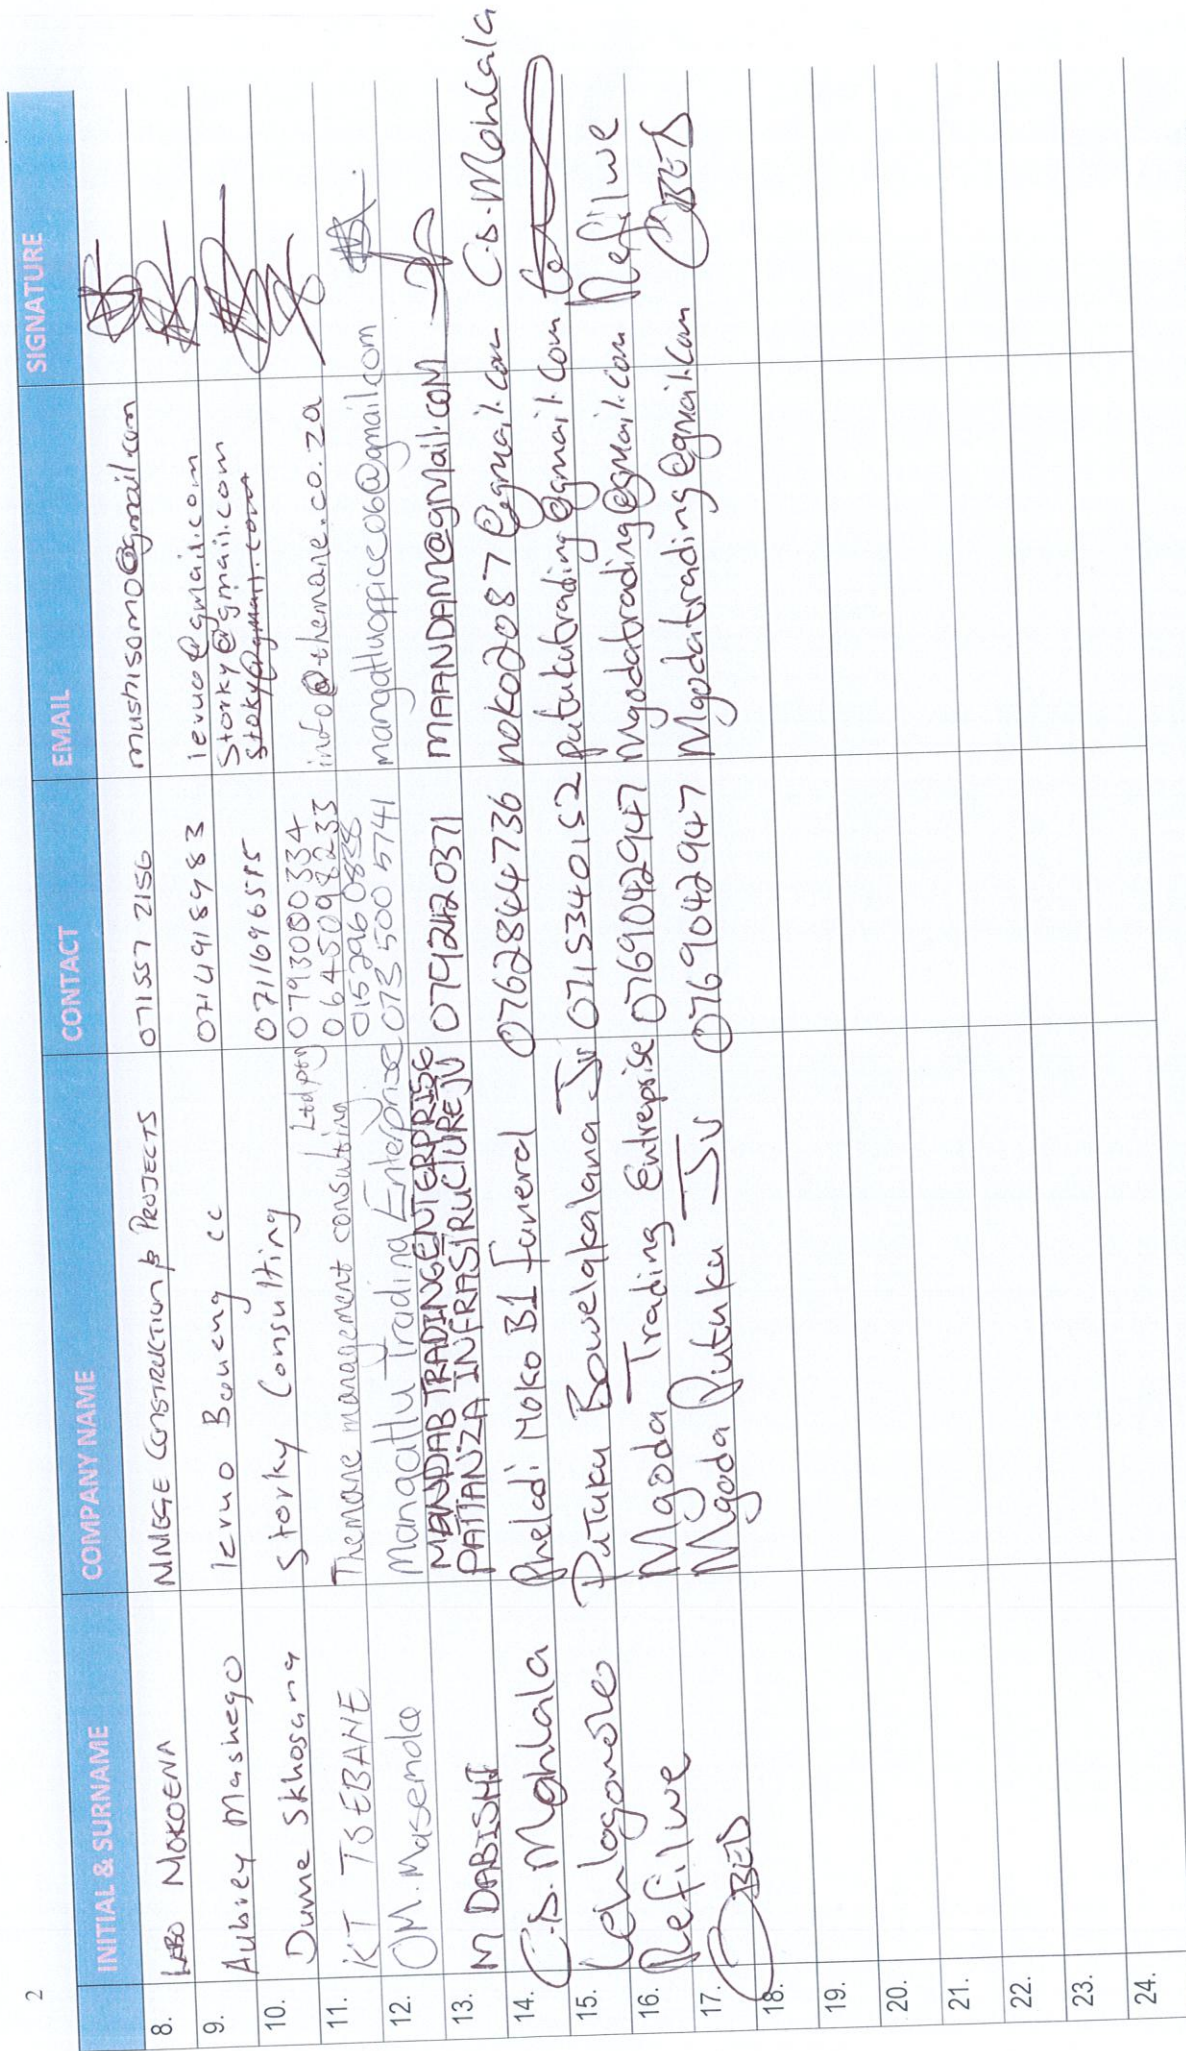 2
INITIAL & SURNAME COMPANY NAME CONTACT EMAIL SIGNATURE
8. LABO MOKOENA MMEGE CONSTRUCTION & PROJECTS 071557 2156 mushisomo@gmail.com
9. Aubrey Mashego Ievuo Boueng cc 0714918983 ievuo@gmail.com
Storky@gmail.com
10. Dume Skhosana Storky Consulting 0711696515 stoky@gmail.com
Ltd pty 0793000334
11. KT TSEBANE Themane management consulting 0645098233 info@themane.co.za
0152960858
12. OM. Masemola Mangatlu Trading Enterprise 073 500 5741 mangatluoffice06@gmail.com
MANDAB TRADING ENTERPRISE
13. M DABISHI PATJANZA INFRASTRUCTURE JV 0792420371 MAANDAM@gmail.com
14. C.S. Mohlala Pheladi Moko B1 Funeral 0762844736 noko2087@gmail.com C.S. Mohlala
15. Lehlogonolo Putuku Bowelakalana JV 0715340152 putukutrading@gmail.com
16. Refilwe Mgoda Trading Entreprise 0769042947 Mgodatrading@gmail.com Refilwe
17. OBED Mgoda Putuku JV 0769042947 Mgodatrading@gmail.com OBED
18.
19.
20.
21.
22.
23.
24.